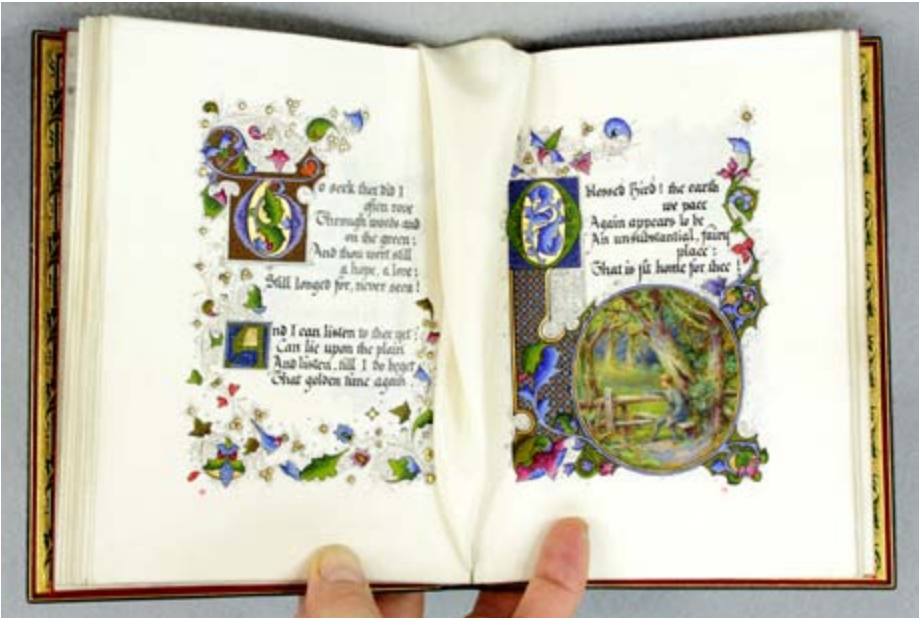 To seek thee did I
often rove
Through woods and
on the green;
And thou wert still
a hope, a love;
Still longed for, never seen!
And I can listen to thee yet;
Can lie upon the plain
And listen, till I do beget
That golden time again.
O blessed Bird! the earth
we pace
Again appears to be
An unsubstantial, fairy
place;
That is fit home for thee!